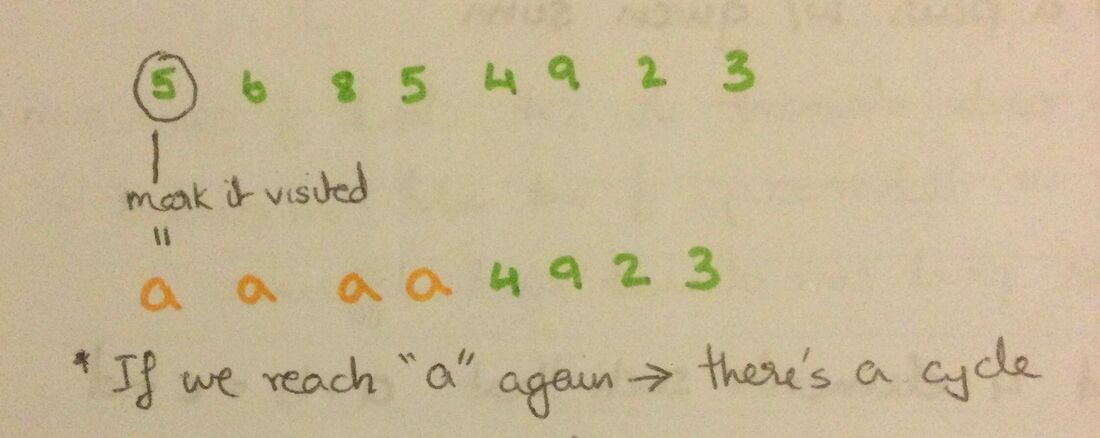 5 6 8 5 4 9 2 3
mark it visited
"
a a a a 4 9 2 3
* If we reach "a" again → there's a cycle